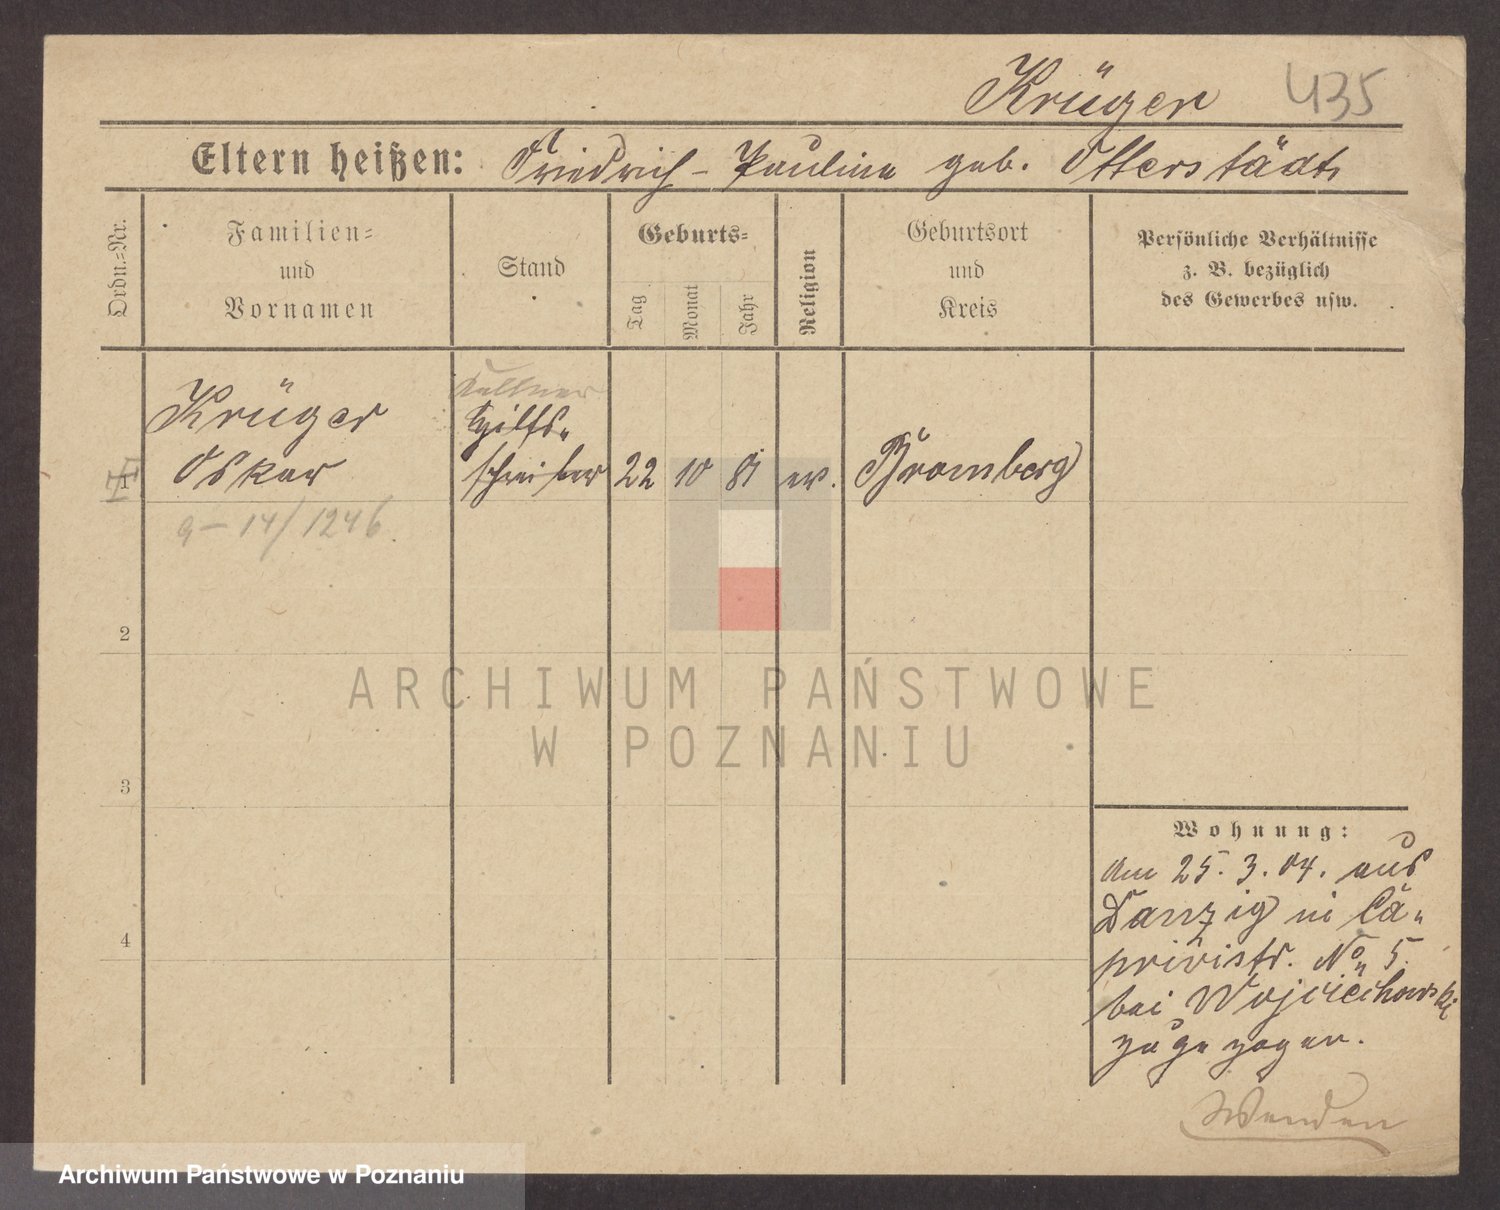 Krüger 435
Eltern heißen: Friedrich - Pauline geb. Otterstädt
Ordn.-Nr.
Familien-
und
Vornamen
Stand
Geburts-
Tag
Monat
Jahr
Religion
Geburtsort
und
Kreis
Persönliche Verhältnisse
z. B. bezüglich
des Gewerbes usw.
Kellner
Krüger
Hilfs-
1 Oskar schreiber 22 10 81 ev. Bromberg
9-14/1246.
2
3
4
Wohnung:
Am 25. 3. 04. aus
Danzig in Ca-
privistr. No 5.
bei Wojciechowski
zugezogen.
Wenden
ARCHIWUM PAŃSTWOWE
W POZNANIU
Archiwum Państwowe w Poznaniu